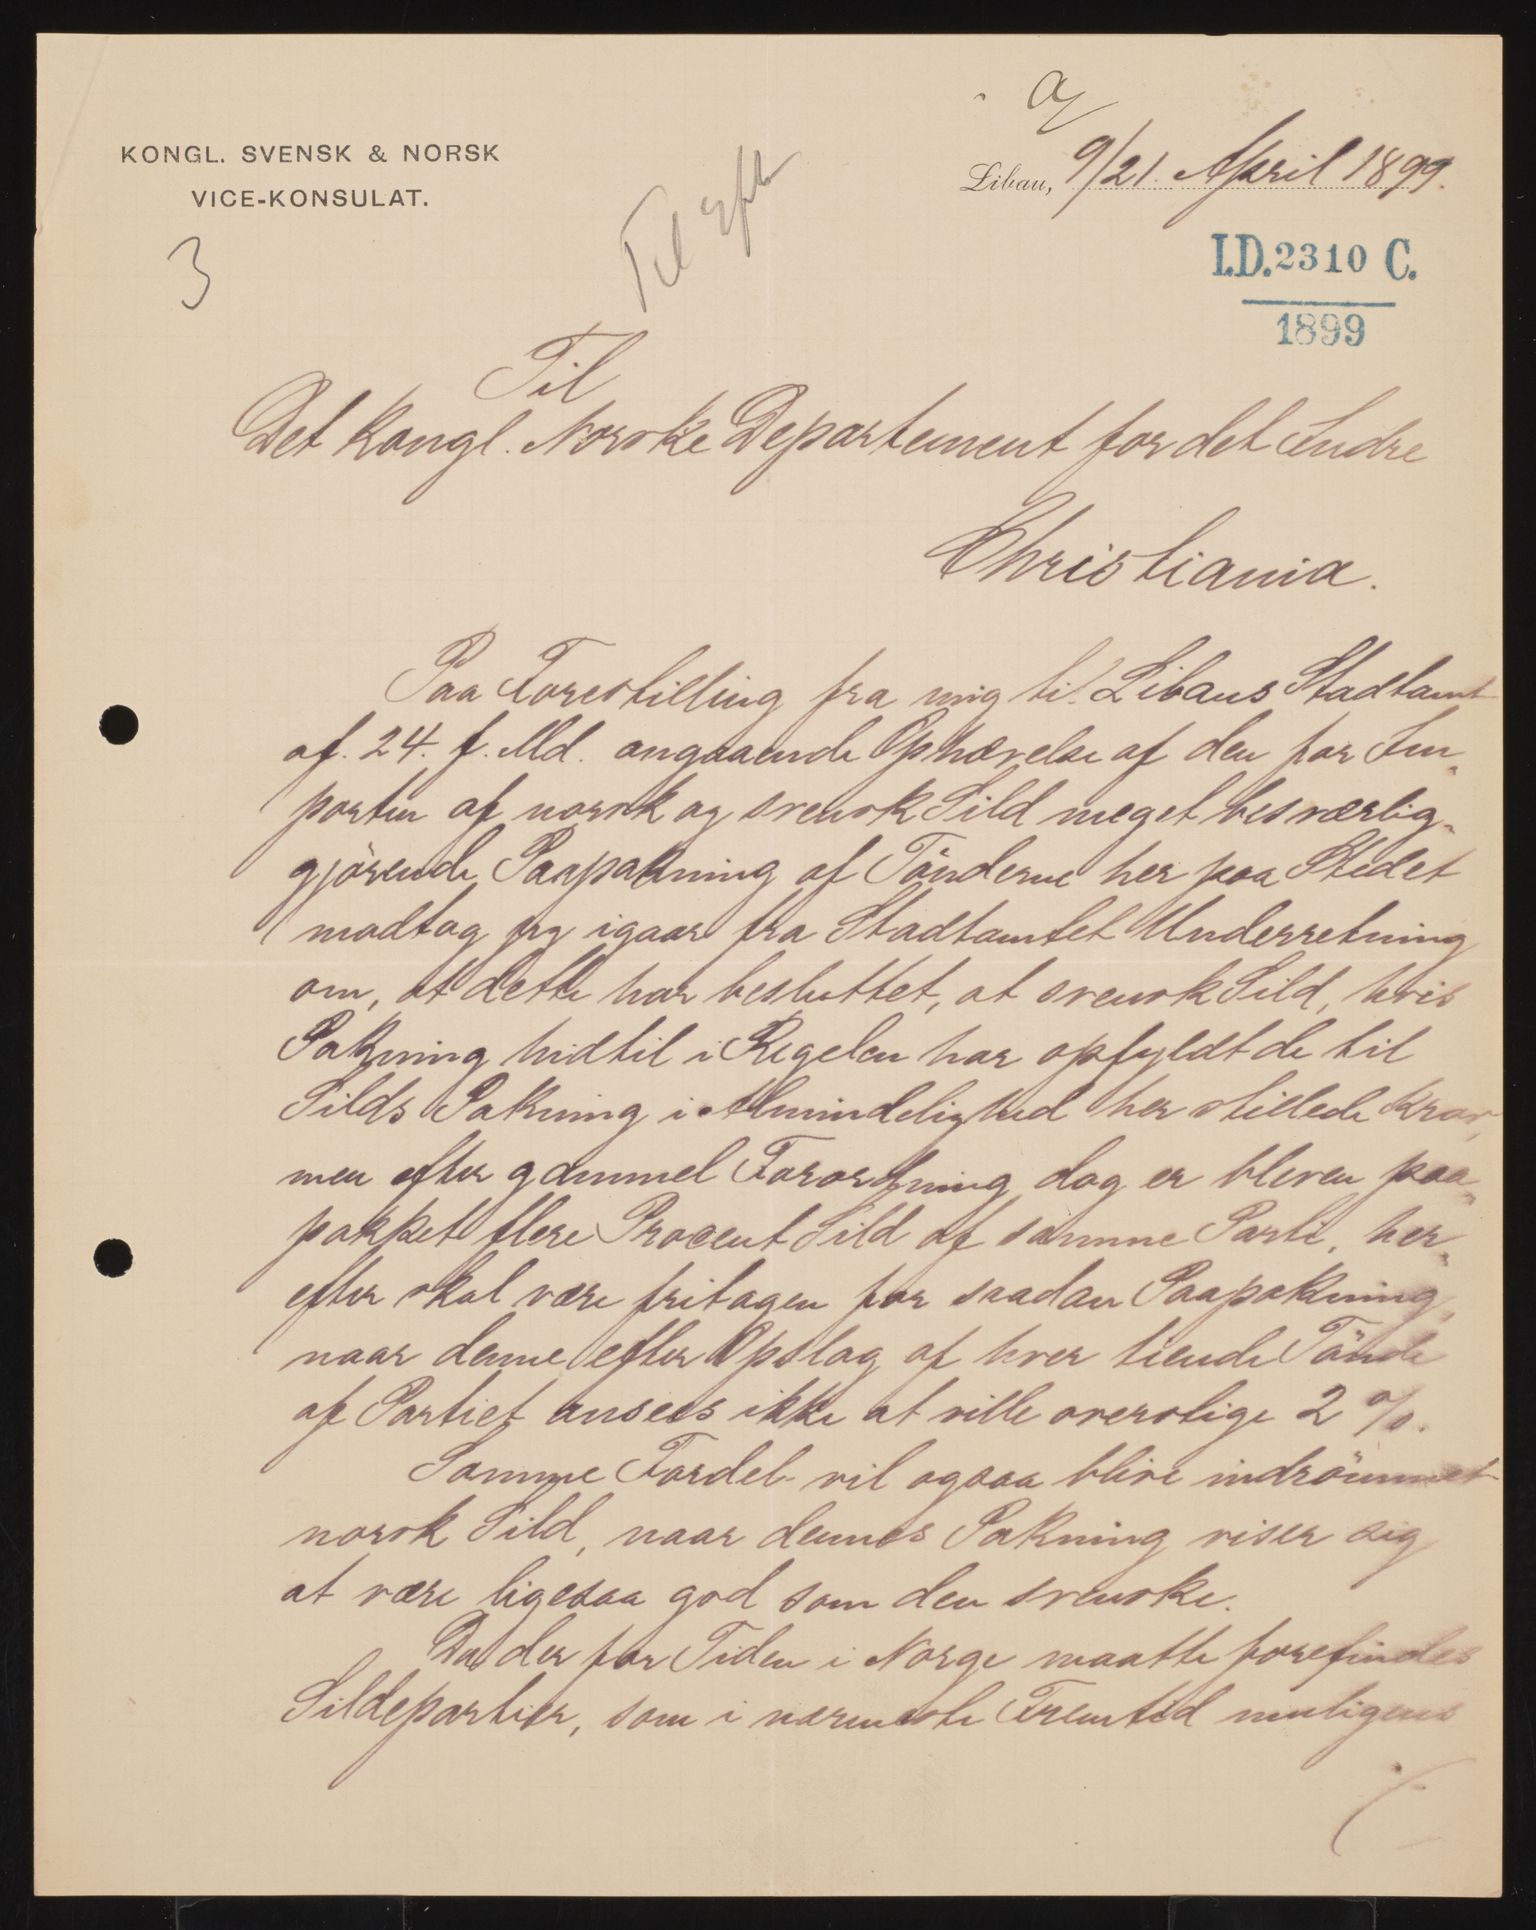 a/
KONGL. SVENSK & NORSK
VICE-KONSULAT.
Libau, 9/21. April 1899.
3
Til
I.D. 2310 C.
1899
Til
Det Kongl. Norske Departement for det Indre
Christiania.
Paa Forestilling fra mig til Libaus Stadtamt
af 24. f. Md. angaaende Ophævelse af den for Im-
porten af norsk og svensk Sild meget besværlig-
gjörende Paapakning af Tönderne her paa Stedet
modtog jeg igaar fra Stadtamtet Underretning
om, at dette har besluttet, at svensk Sild, hvis
Pakning hidtil i Regelen har opfyldt de til
Silds Pakning i Almindelighed her stillede Krav,
men efter gammel Forordning dog er bleven paa-
pakket flere Procent Sild af samme Parti, her-
efter skal være fritagen for saadan Paapakning,
naar denne efter Opslag af hver tiende Tönde
af Partiet ansees ikke at ville overstige 2 %.
Samme Fordel vil ogsaa blive indrömmet
norsk Sild, naar dennes Pakning viser sig
at være ligesaa god som den svenske.
Da der for Tiden i Norge maatte forefindes
Sildepartier, som i nærmeste Fremtid muligens
./.